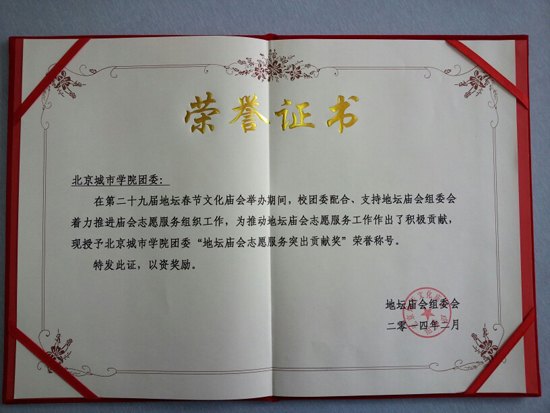 荣誉证书
北京城市学院团委：
在第二十九届地坛春节文化庙会举办期间，校团委配合、支持地坛庙会组委会
着力推进庙会志愿服务组织工作，为推动地坛庙会志愿服务工作作出了积极贡献，
现授予北京城市学院团委“地坛庙会志愿服务突出贡献奖”荣誉称号。
特发此证，以资奖励。
地坛庙会组委会
二零一四年二月